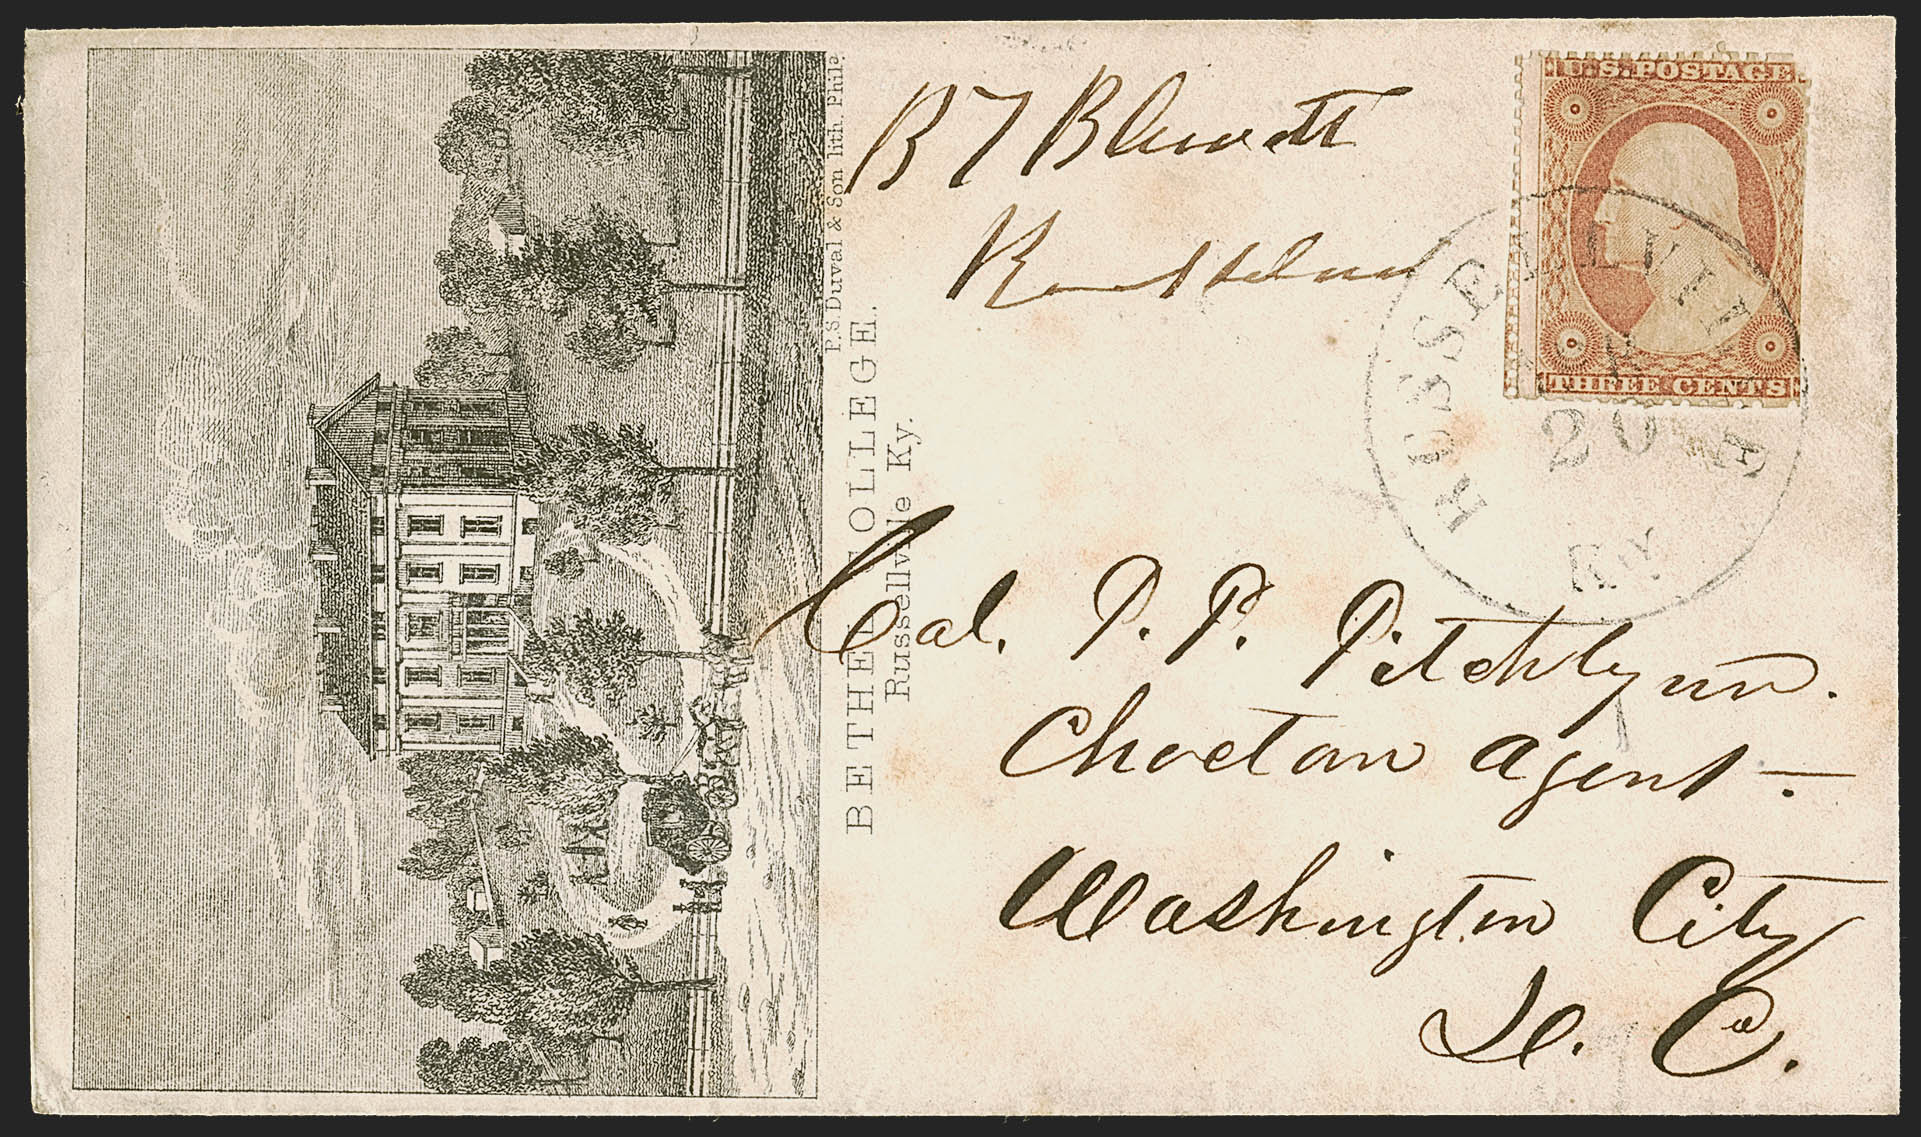 P.S. Duval & Son lith. Phila.
BETHEL COLLEGE.
Russellville Ky.
B T Blewett
U.S. POSTAGE
THREE CENTS
RUSSELLVILLE
20
Ky
Col. P. P. Pitchlynn.
Choctaw Agent -
Washington City
D. C.